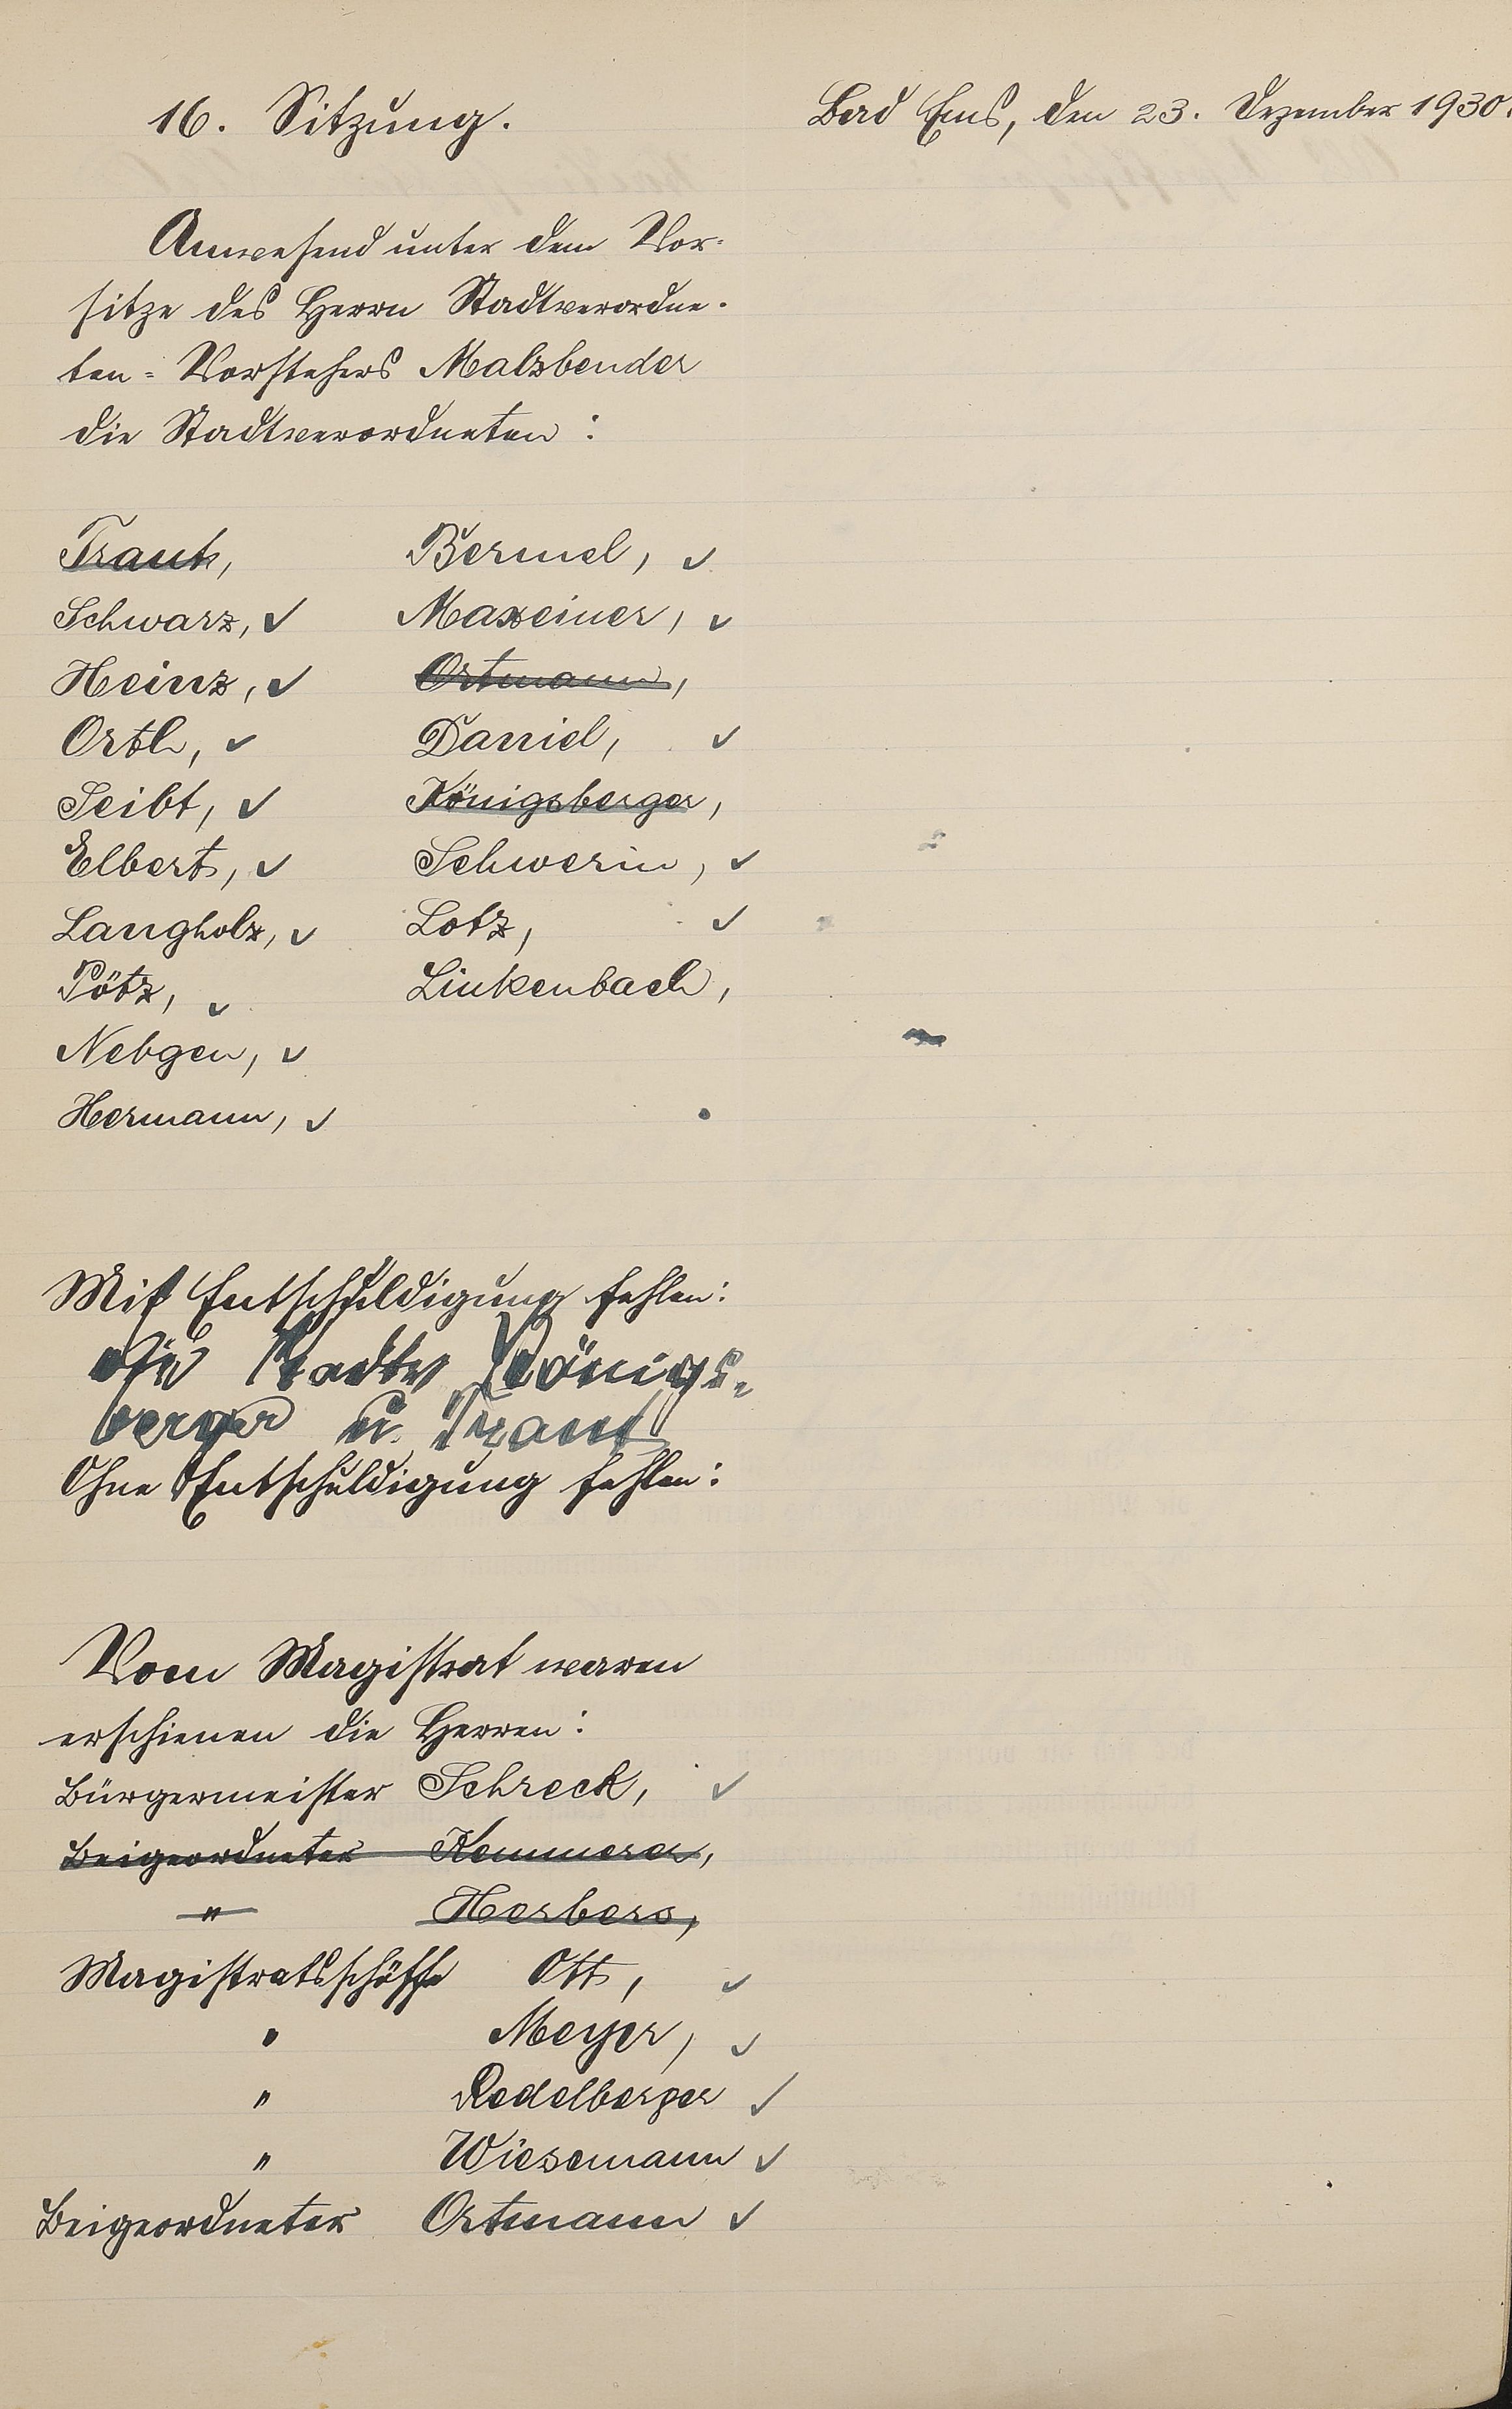 16. Sitzung.
Bad Ems, den 23. Dezember 1930.
Anwesend unter dem Vor-
sitze des Herrn Stadtverordne-
ten-Vorstehers Malzbender
die Stadtverordneten:
Traut,
Bermel, ✓
Schwarz, ✓
Maxeiner, ✓
Heinz, ✓
Ortmann,
Orth, ✓
Daniel, ✓
Seibt, ✓
Königsberger,
Elbert, ✓
Schwerin, ✓
Langholz, ✓
Lotz, ✓
Pötz, ✓
Linkenbach,
Nebgen, ✓
Hermann, ✓
Mit Entschuldigung fehlen:
die Stadtv Königs-
berger u. Traut
Ohne Entschuldigung fehlen:
Vom Magistrat waren
erschienen die Herren:
Bürgermeister Schreck, ✓
Beigeordneter Kemmerer,
" Herbers,
Magistratsschöffe Ott, ✓
" Meyer, ✓
" Redelberger ✓
" Wiesemann ✓
Beigeordneter Ortmann ✓